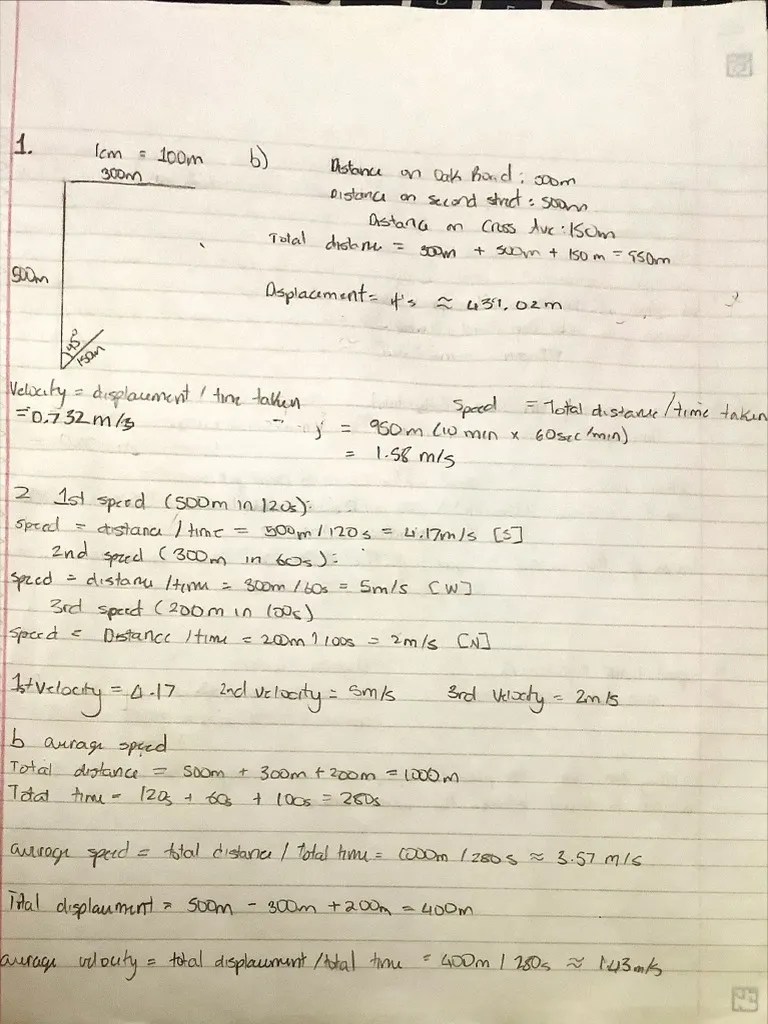 1.
1cm = 100m
300m
500m
45°
150m
b)
Distance on Oak Road: 300m
Distance on second street: 500m
Distance on Cross Ave: 150m
Total distance = 300m + 500m + 150m = 950m
Displacement = ≈ 439.02m
Velocity = displacement / time taken
= 0.732 m/s
Speed = Total distance / time taken
= 950m (10 min x 60sec/min)
= 1.58 m/s
2 1st speed (500m in 120s):
speed = distance / time = 500m/120s = 4.17m/s [S]
2nd speed (300m in 60s):
speed = distance / time = 300m/60s = 5m/s [W]
3rd speed (200m in 100s)
speed = Distance / time = 200m/100s = 2m/s [N]
1st velocity = 4.17 2nd velocity = 5m/s 3rd velocity = 2m/s
b average speed
Total distance = 500m + 300m + 200m = 1000m
Total time = 120s + 60s + 100s = 280s
average speed = total distance / total time = 1000m / 280s ≈ 3.57 m/s
Total displacement = 500m - 300m + 200m = 400m
average velocity = total displacement / total time = 400m / 280s ≈ 1.43m/s